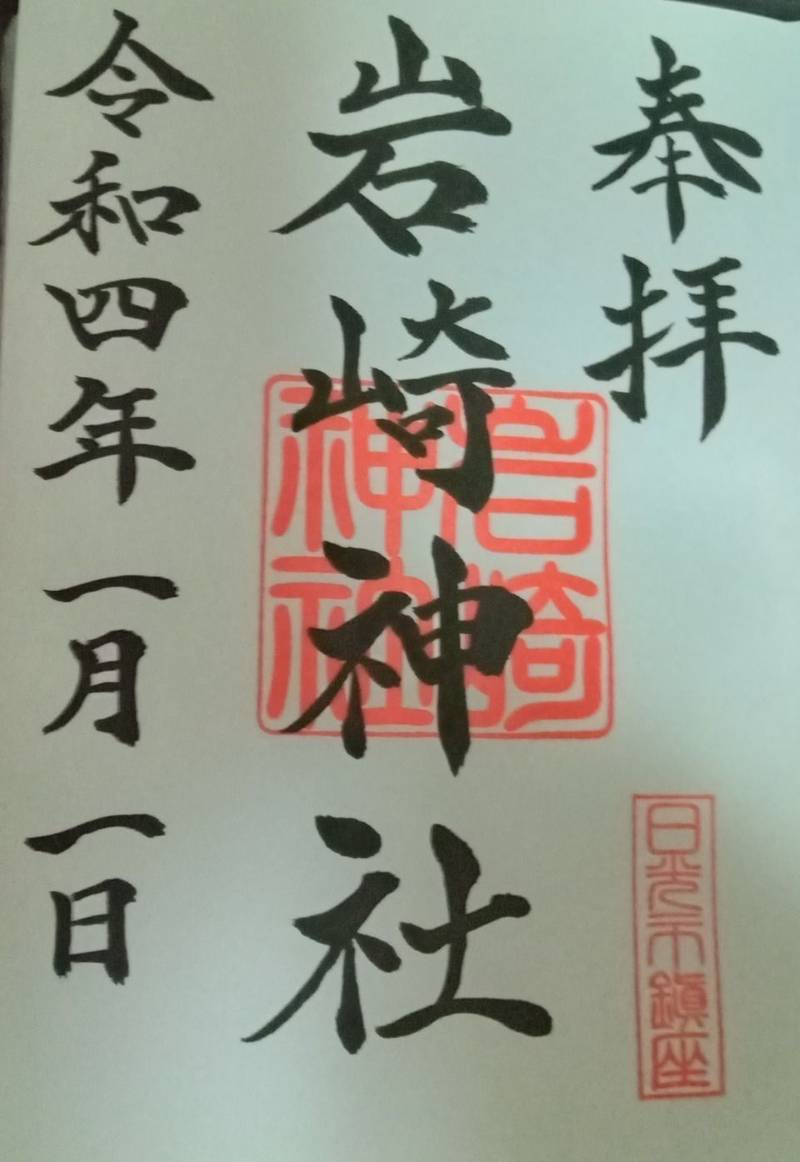 奉拝
日光市鎮座
岩崎神社
岩崎神社
令和四年一月一日